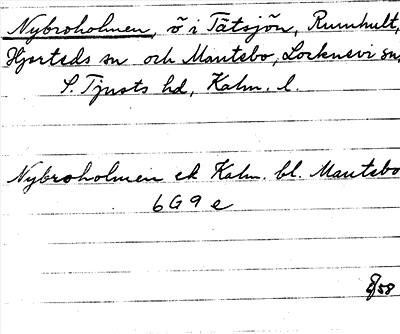 Nybroholmen, ö i Tätsjön, Rumhult,
Hjorteds sn och Mantebo, Locknevi sn,
S. Tjusts hd, Kalm. l.
Nybroholmen ek Kalm. bl. Mantebo
6 G 9 e
58